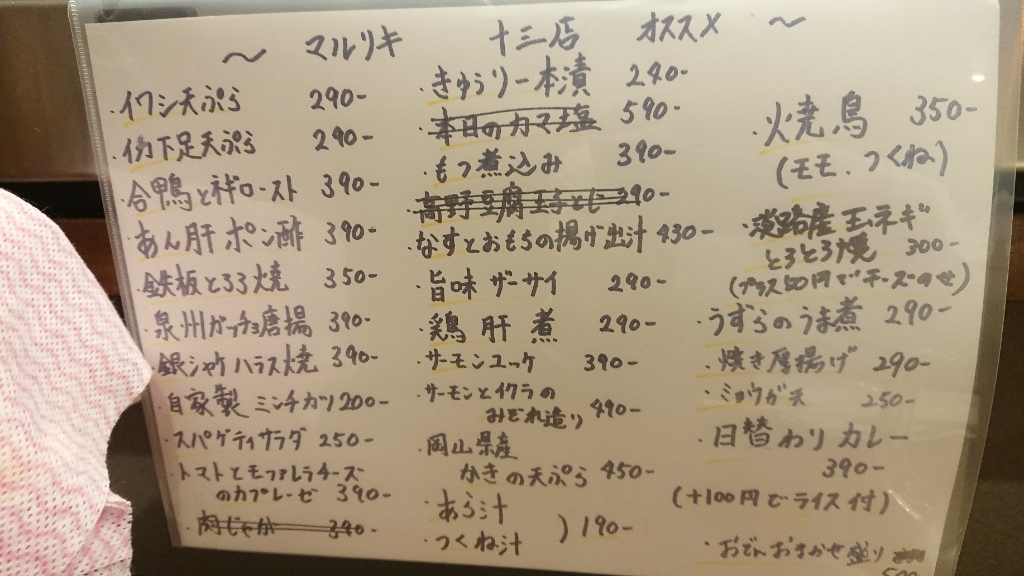 〜 マルリキ 十三店 オススメ 〜
・イワシ天ぷら 290-
・イカ下足天ぷら 290-
・合鴨と祥ロースト 390-
・あん肝ポン酢 390-
・鉄板とろろ焼 350-
・泉州ガッチョ唐揚 390-
・銀シャケハラス焼 390-
・自家製ミンチカツ 200-
・スパゲティサラダ 250-
・トマトとモッツァレラチーズ
のカプレーゼ 390-
・肉じゃが 340-
・きゅうり一本漬 240-
・本日のカマ塩 590-
・もつ煮込み 390-
・高野豆腐玉子とじ 290-
・なすとおもちの揚げ出汁 430-
・旨味ザーサイ 290-
・鶏肝煮 290-
・サーモンユッケ 390-
・サーモンとイクラの
みぞれ造り 490-
・岡山県産
かきの天ぷら 450-
・あら汁
・つくね汁 ) 190-
・焼鳥 350-
(モモ、つくね)
・淡路産玉ネギ
とろとろ焼 300-
(プラス50円でチーズのせ)
・うずらのうま煮 290-
・焼き厚揚げ 290-
・ミョウガ天 250-
・日替わりカレー
390-
(+100円でライス付)
・おでんおまかせ盛り
500